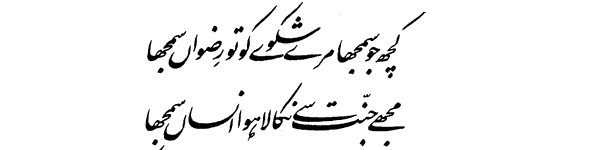 کچھ جو سمجھا مرے شکوے کو تو رضواں سمجھا
مجھے جنّت سے نکالا ہوا انساں سمجھا